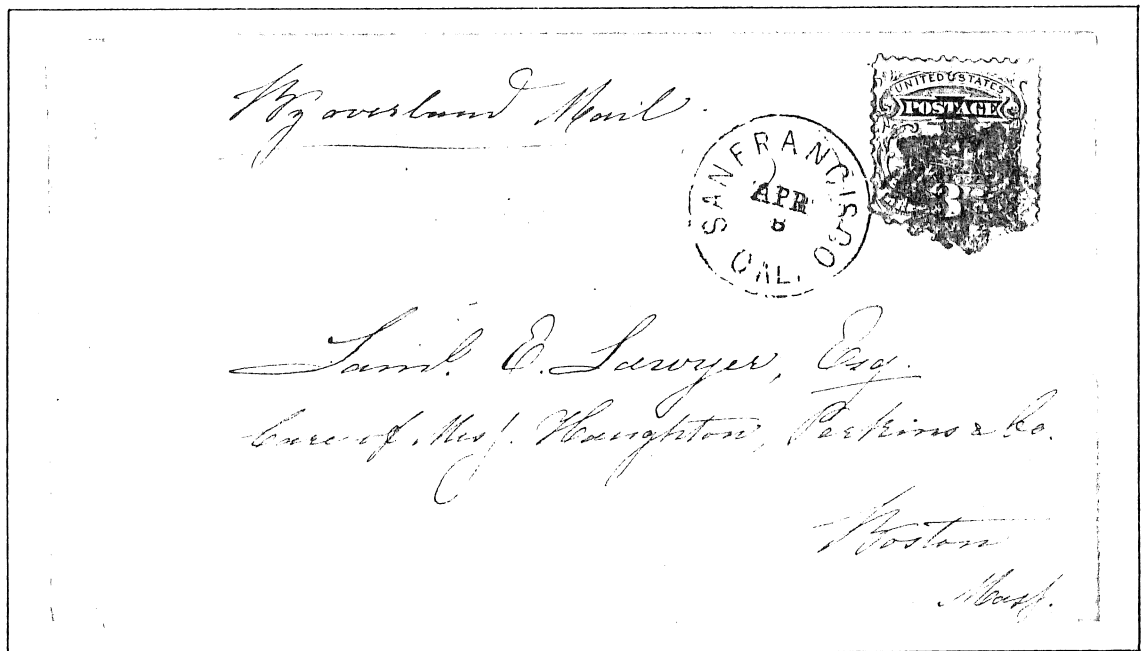 By overland Mail.
UNITED STATES
POSTAGE
3
SAN FRANCISCO
APR
8
CAL.
Saml. E. Sawyer, Esq.
Care of Mess. Haughton, Perkins & Co.
Boston
Mass.